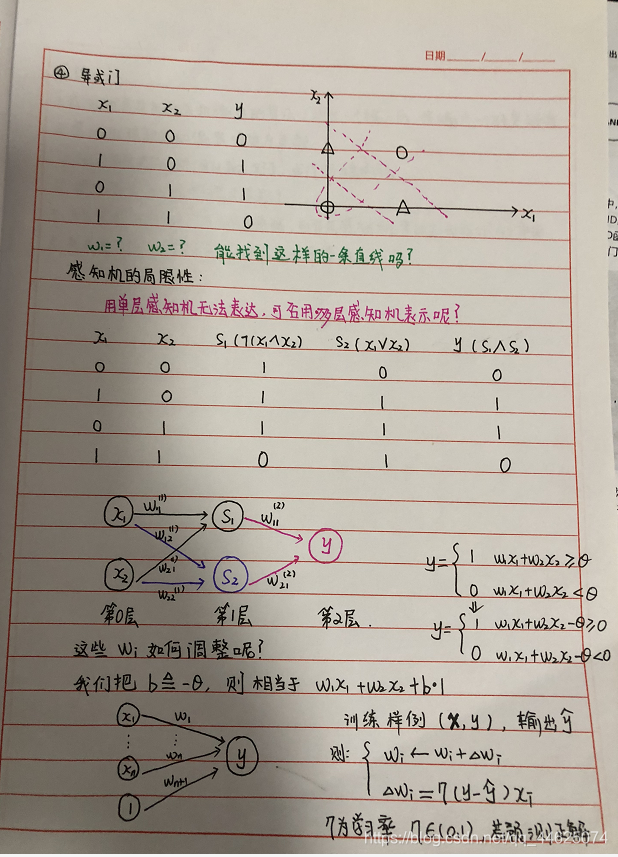 日期 / /
④ 异或门
x₁ x₂ y
0 0 0
1 0 1
0 1 1
1 1 0
x₂
x₁
w₁=? w₂=? 能找到这样的一条直线吗?
感知机的局限性:
用单层感知机无法表达,可否用多层感知机表示呢?
x₁ x₂ S₁(¬(x₁∧x₂) S₂(x₁∨x₂) y(S₁∧S₂)
0 0 1 0 0
1 0 1 1 1
0 1 1 1 1
1 1 0 1 0
x₁ w₁₁⁽¹⁾ S₁ w₁₁⁽²⁾
w₁₂⁽¹⁾ y
w₂₁⁽¹⁾
x₂ w₂₂⁽¹⁾ S₂ w₂₁⁽²⁾
第0层 第1层 第2层.
y={ 1 w₁x₁+w₂x₂≥θ
0 w₁x₁+w₂x₂<θ
⇓
y={ 1 w₁x₁+w₂x₂-θ≥0
0 w₁x₁+w₂x₂-θ<0
这些 wᵢ 如何调整呢?
我们把 b≜-θ, 则相当于 w₁x₁+w₂x₂+b·1
x₁ w₁
⋮ ⋮
xₙ wₙ y
1 wₙ₊₁
训练样例 (x,y), 输出 ŷ
则: { wᵢ ← wᵢ+Δwᵢ
Δwᵢ=η(y-ŷ)xᵢ
η为学习率 η∈(0,1)